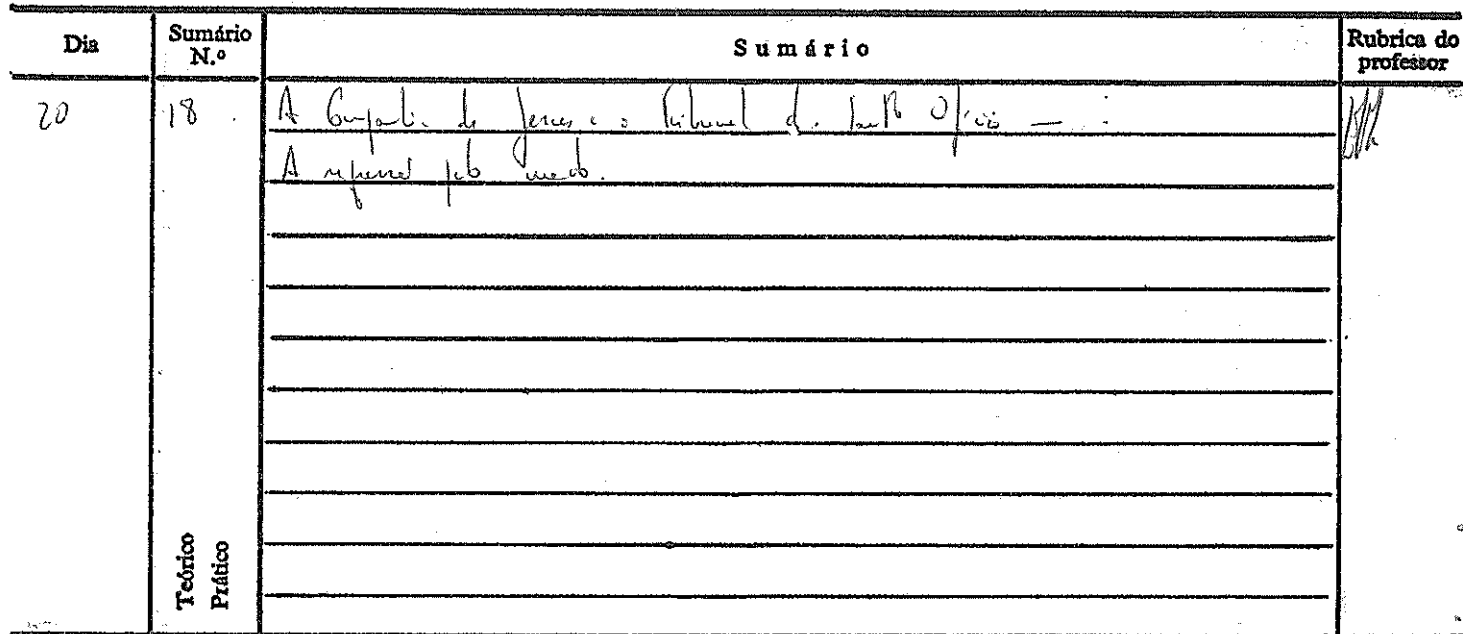 Dia
Sumário N.º
Sumário
Rubrica do professor
20
18
A Companhia de Jesus e o Tribunal do Santo Ofício —
A pelo medo.
Teórico
Prático